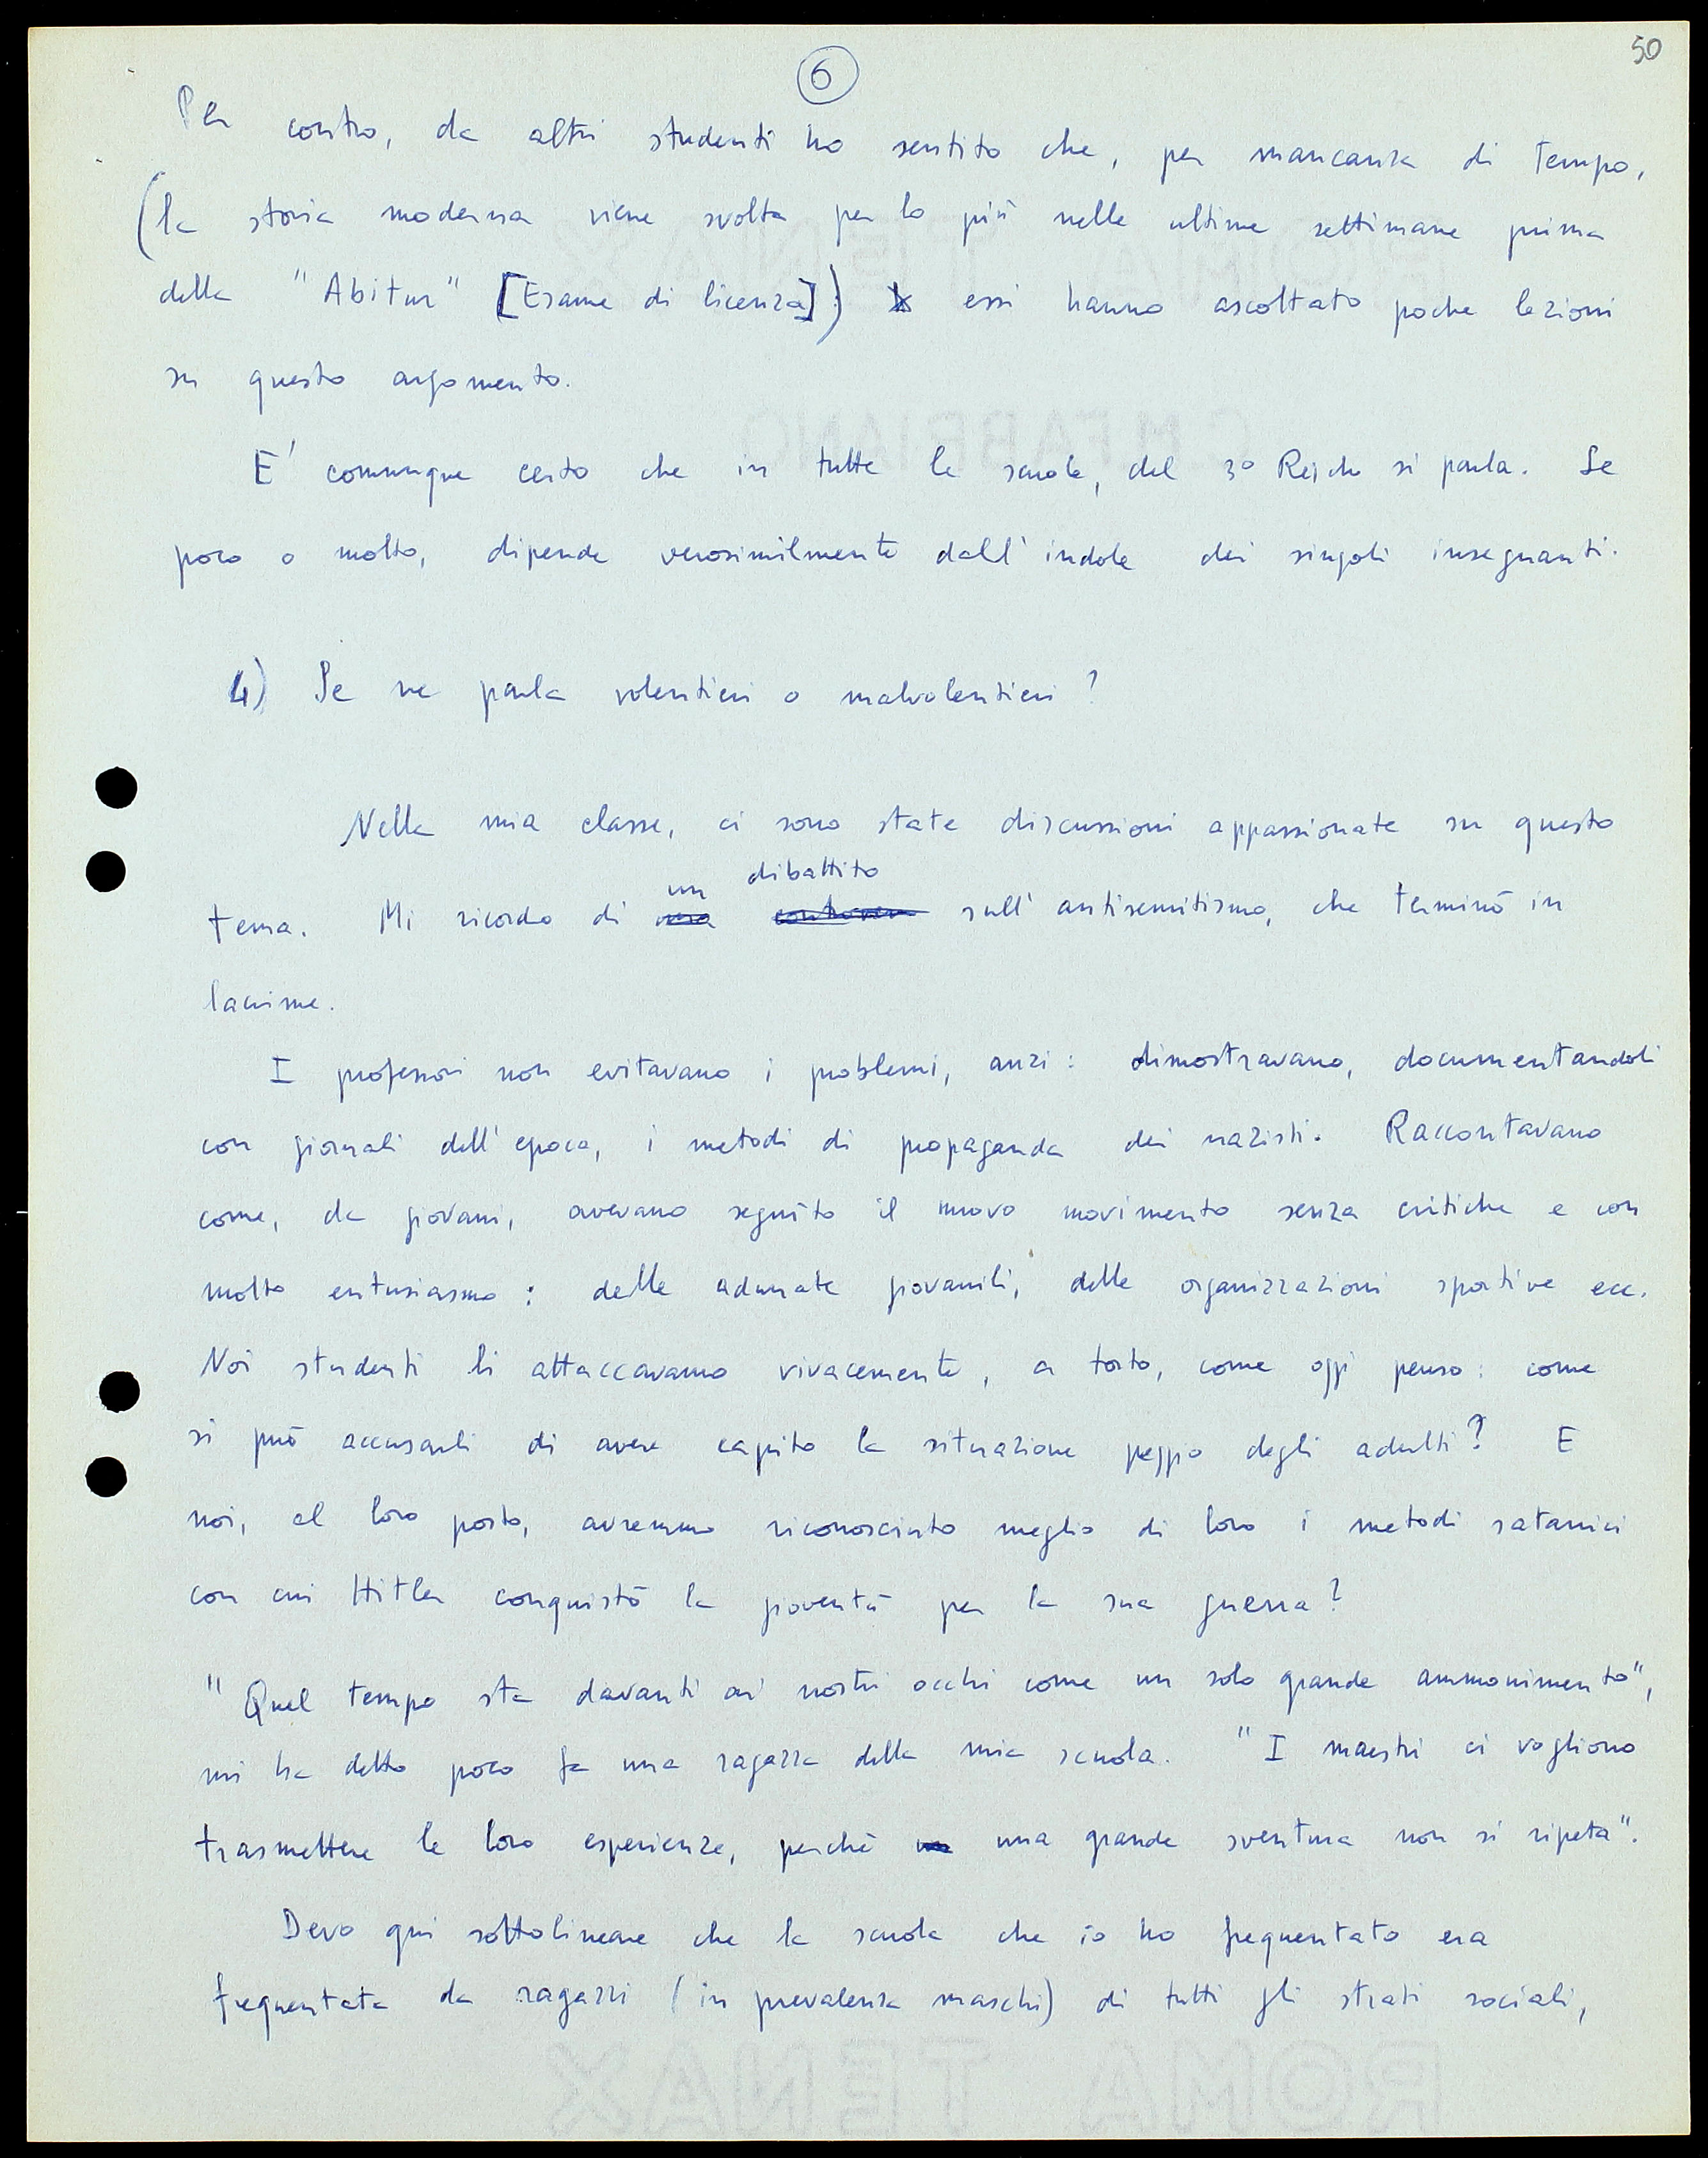 50
6
Per contro, da altri studenti ho sentito che, per mancanza di tempo,
(la storia moderna viene svolta per lo più nelle ultime settimane prima
della "Abitur" [Esame di licenza]) essi hanno ascoltato poche lezioni
su questo argomento.
E' comunque certo che in tutte le scuole, del 3° Reich si parla. Se
poco o molto, dipende verosimilmente dall'indole dei singoli insegnanti.
4) Se ne parla volentieri o malvolentieri?
Nella mia classe, ci sono state discussioni appassionate su questo
un dibattito
tema. Mi ricordo di una controversia sull'antisemitismo, che terminò in
lacrime.
I professori non evitavano i problemi, anzi: dimostravano, documentandoli
con giornali dell'epoca, i metodi di propaganda dei nazisti. Raccontavano
come, da giovani, avevano seguito il nuovo movimento senza critiche e con
molto entusiasmo: delle adunate giovanili, delle organizzazioni sportive ecc.
Noi studenti li attaccavamo vivacemente, a torto, come oggi penso: come
si può accusarli di avere capito la situazione peggio degli adulti? E
noi, al loro posto, avremmo riconosciuto meglio di loro i metodi satanici
con cui Hitler conquistò la gioventù per la sua guerra?
"Quel tempo sta davanti ai nostri occhi come un solo grande ammonimento",
mi ha detto poco fa una ragazza della mia scuola. "I maestri ci vogliono
trasmettere le loro esperienze, perché una grande sventura non si ripeta".
Devo qui sottolineare che la scuola che io ho frequentato era
frequentata da ragazzi (in prevalenza maschi) di tutti gli strati sociali,
ROMA TENAX